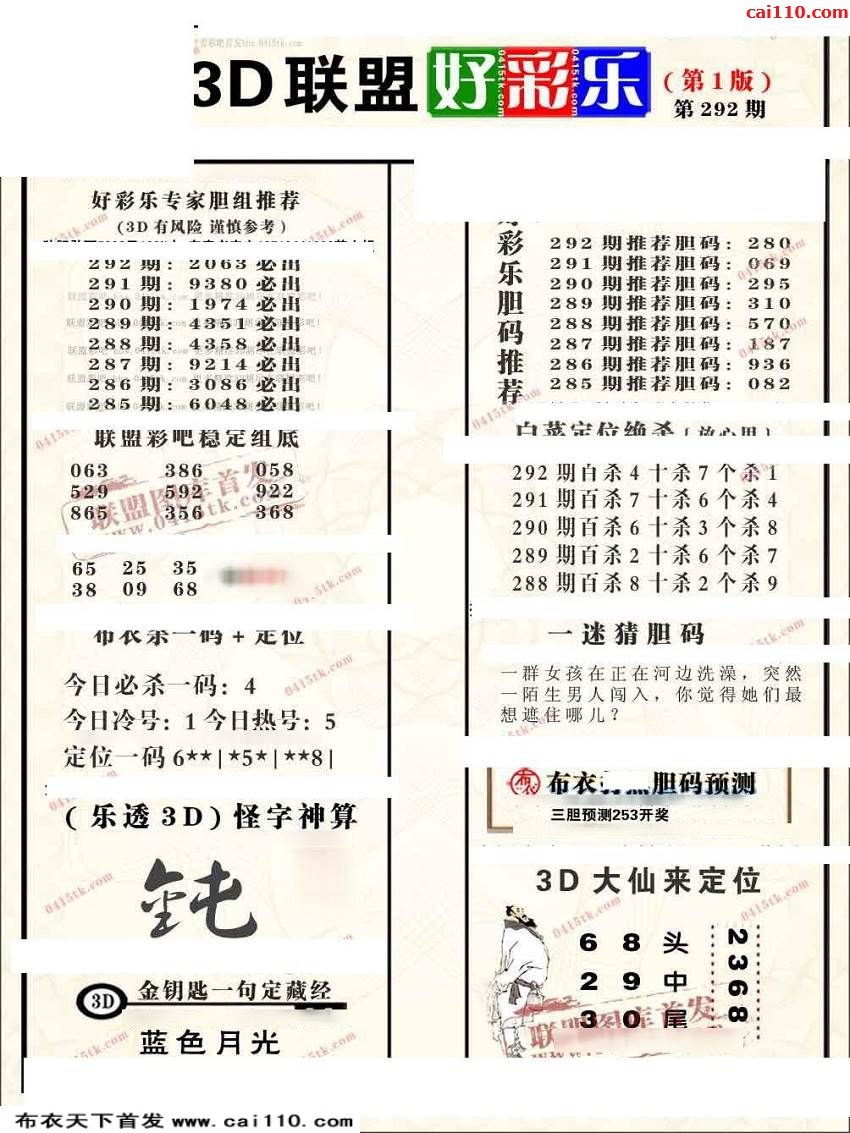 cai110.com
3D联盟好彩乐
(第1版)
第292期
好彩乐专家胆组推荐
(3D有风险 谨慎参考)
292期: 2063必出
291期: 9380必出
290期: 1974必出
289期: 4351必出
288期: 4358必出
287期: 9214必出
286期: 3086必出
285期: 6048必出
联盟彩吧稳定组底
063 386 058
529 592 922
865 356 368
联盟图库首发
www.0415tk.com
65 25 35
38 09 68
布衣杀一码+定位
今日必杀一码: 4
今日冷号: 1 今日热号: 5
定位一码 6**|*5*|**8|
(乐透3D)怪字神算
3D
金钥匙一句定藏经
蓝色月光
好彩乐胆码推荐
292期推荐胆码: 280
291期推荐胆码: 069
290期推荐胆码: 295
289期推荐胆码: 310
288期推荐胆码: 570
287期推荐胆码: 187
286期推荐胆码: 936
285期推荐胆码: 082
白菜定位绝杀(放心用)
292期百杀4十杀7个杀1
291期百杀7十杀6个杀4
290期百杀6十杀3个杀8
289期百杀2十杀6个杀7
288期百杀8十杀2个杀9
一迷猜胆码
一群女孩在正在河边洗澡，突然
一陌生男人闯入，你觉得她们最
想遮住哪儿？
布衣 胆码预测
三胆预测253开奖
3D大仙来定位
6 8 头
2 9 中
3 0 尾
2368
联盟图库首发
布衣天下首发 www.cai110.com